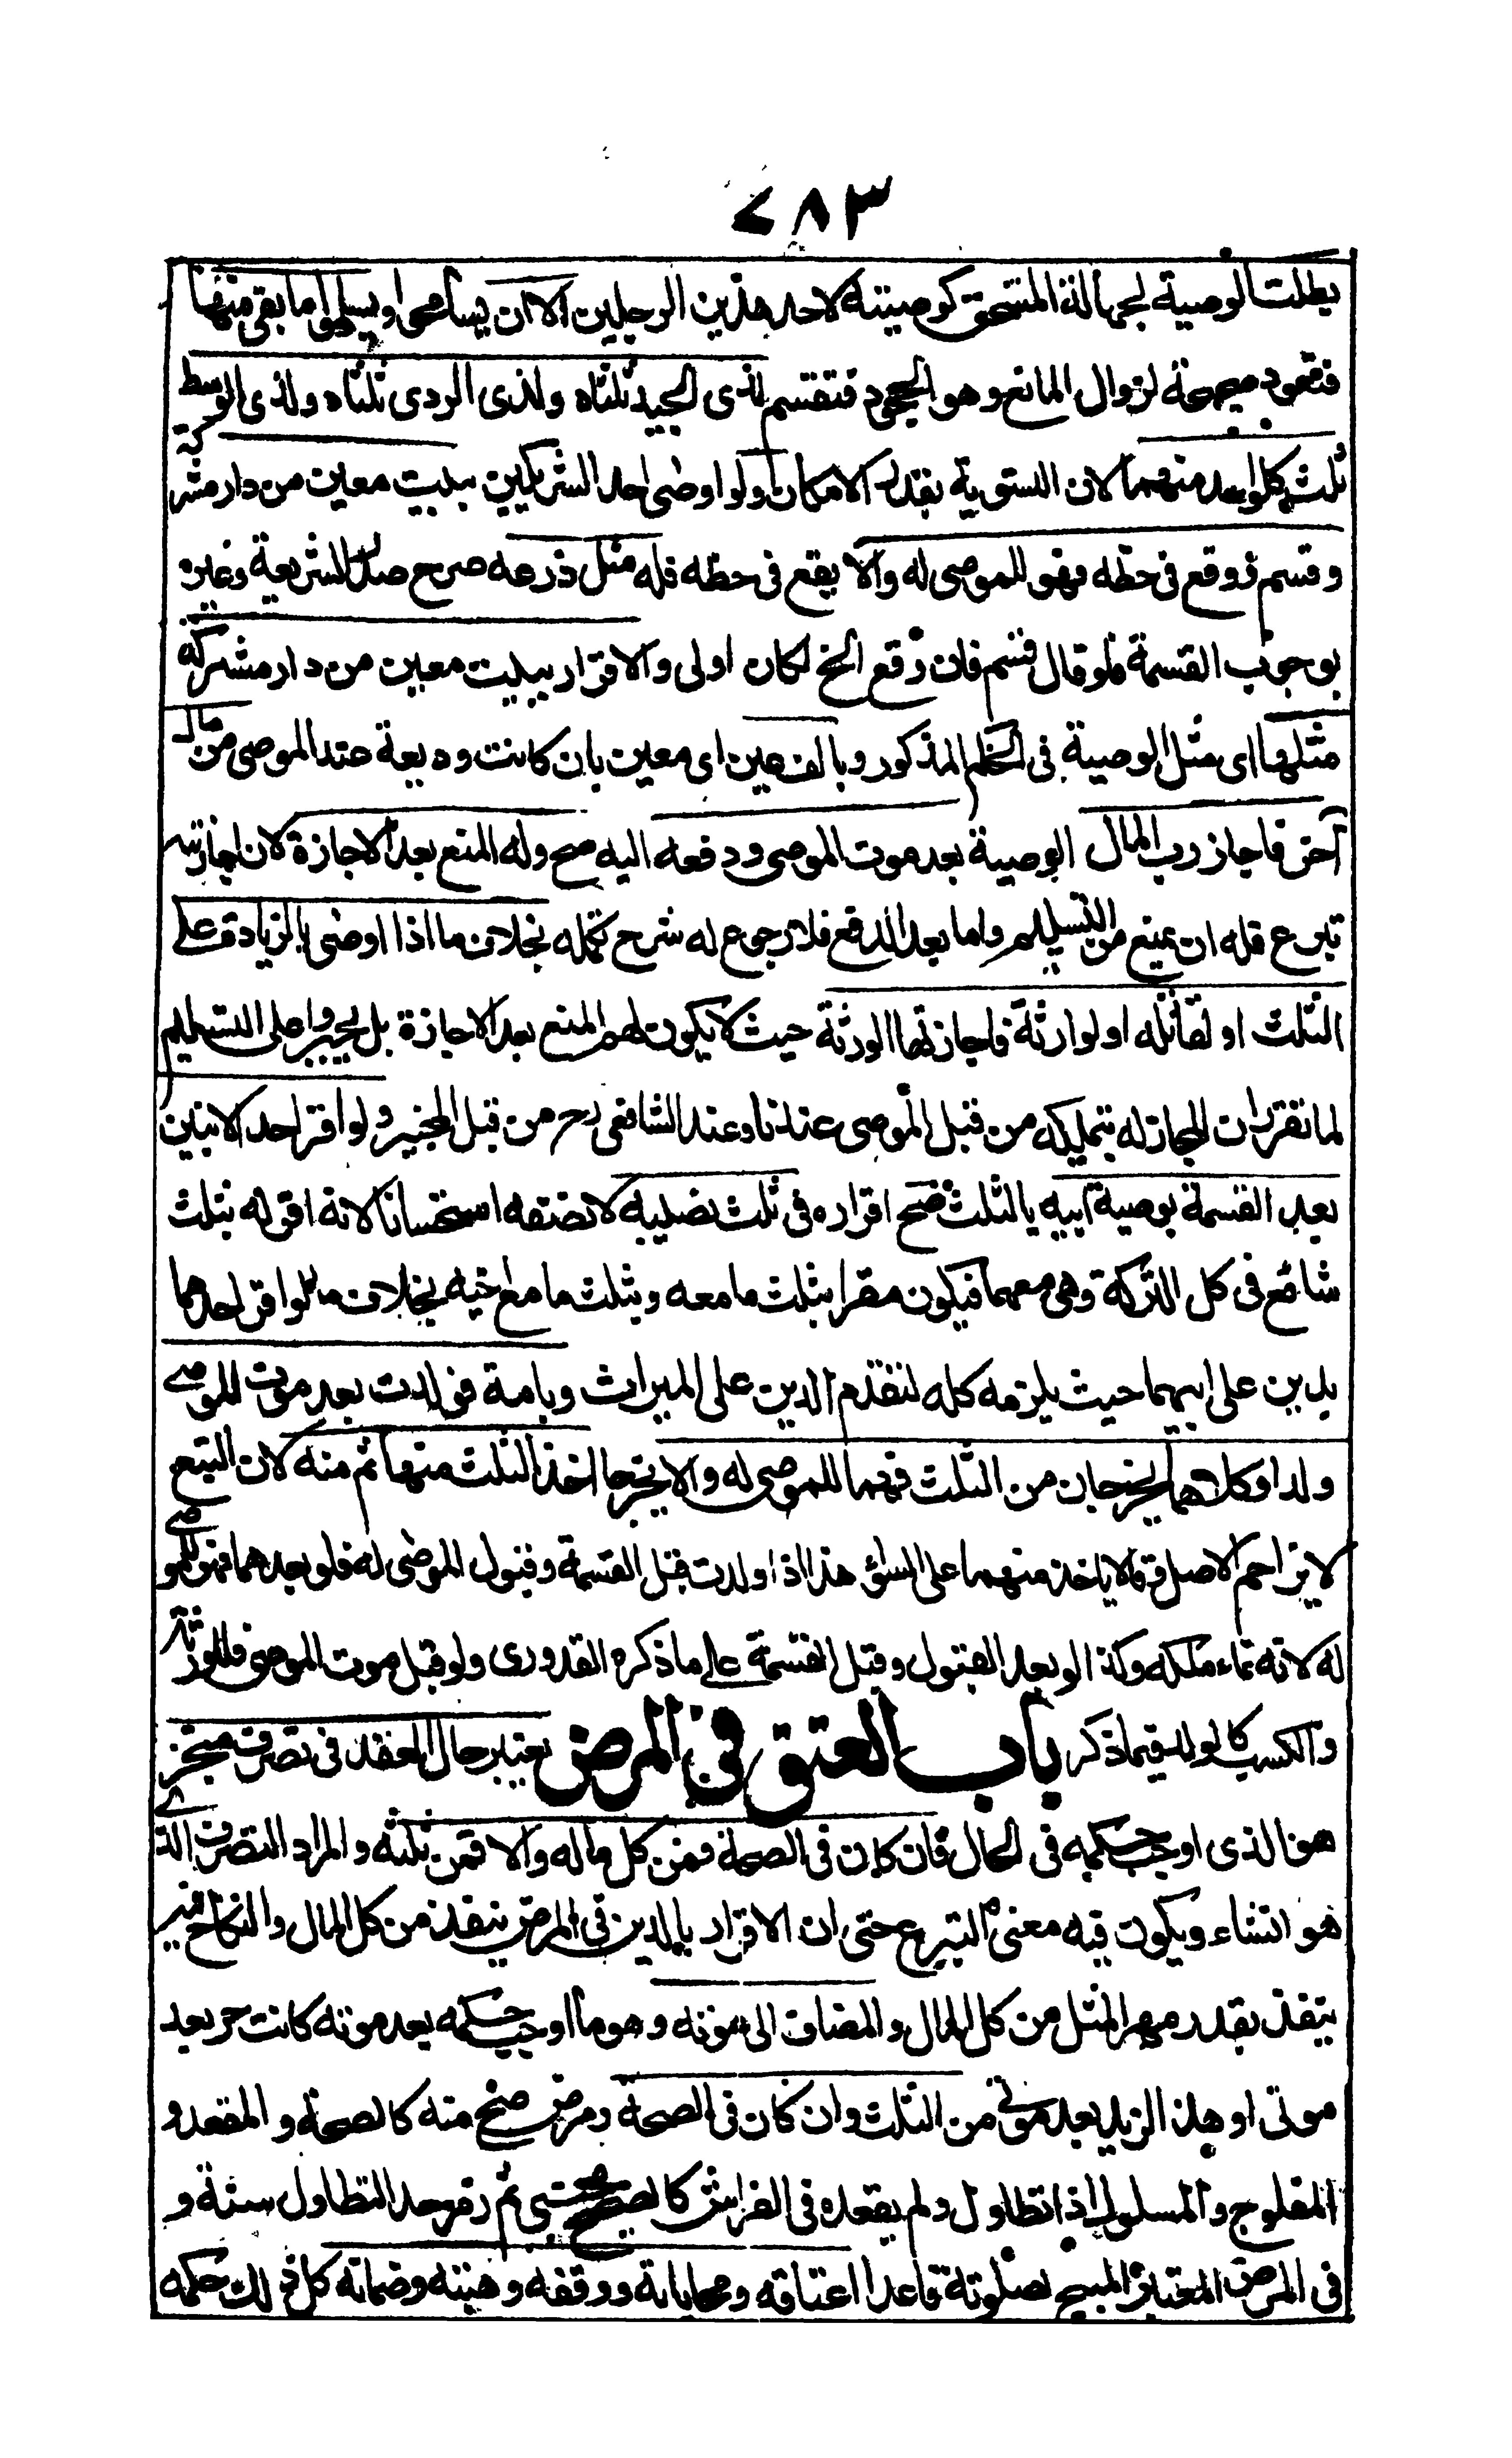 ٧٨٣
بطلت الوصية لجهالة المستحق كوصيته لاحد هذين الرجلين الا ان يسامحوا ويسلموا ما بقى منها
فتعود صحيحة لزوال المانع وهو الجحود فتقسم لذى الجيد ثلثاه ولذى الردى ثلثاه ولذى الوسط
ثلث كل واحد منهما لان التسوية بقدر الامكان ولو اوصى احد الشريكين ببيت معين من دار مشتركة
وقسم ووقع فى حظه فهو للموصى له والا يقع فى حظه فله مثل ذرعه صرح صدر الشريعة وغيره
بوجوب القسمة فلو قال قسم فان وقع الخ لكان اولى والاقرار ببيت معين من دار مشتركة
مثلها اى مثل الوصية فى الحكم المذكور وبالف عين اى معين بان كانت وديعة عند الموصى من مال
آخر فاجاز رب المال الوصية بعد موت الموصى ودفعه اليه صح وله المنع بعد الاجازة لان اجازته
تبرع فله ان يمنع من التسليم واما بعد الدفع فلا رجوع له شرح تكمله بخلاف ما اذا اوصى بالزيادة على
الثلث او لقاتله او لوارثه فاجازتها الورثة حيث لا يكون لهم المنع بعد الاجازة بل يجبروا على التسليم
لما تقرر ان المجاز له يتملكه من قبل الموصى عندنا وعند الشافعى رح من قبل المجيز ولو اقر احد الابنين
بعد القسمة بوصية ابيه بالثلث صح اقراره فى ثلث نصيبه لا نصفه استحسانا لانه اقر له بثلث
شائع فى كل التركة وهى معهما فيكون مقرا بثلث ما معه وبثلث ما مع اخيه بخلاف ما لو اقر احدهما
بدين على ابيهما حيث يلزمه كله لتقدم الدين على الميراث وبامة فولدت بعد موت الموصى
ولدا وكلاهما يخرجان من الثلث فهما للموصى له والا يخرجا اخذ الثلث منها ثم منه لان التبع
لا يزاحم الاصل وقالا ياخذ منهما على السواء هذا اذا ولدت قبل القسمة وقبول الموصى له فلو بعدهما فهو للموصى
له لانه نماء ملكه وكذا لو بعد القبول وقبل القسمة على ما ذكره القدورى ولو قبل موت الموصى فللورثة
والكسب كالولد فيما ذكر باب العتق فى المرض يعتبر حال العقد فى تصرف منجز
هو الذى اوجب حكمه فى الحال فان كان فى الصحة فمن كل ماله والا فمن ثلثه والمراد التصرف الذى
هو انشاء ويكون فيه معنى التبرع حتى ان الاقرار بالدين فى المرض ينفذ من كل المال والنكاح فيه
ينفذ بقدر مهر المثل من كل المال والمضاف الى موته وهو ما اوجب حكمه بعد موته كانت حر بعد
موتى او هذا لزيد بعد موتى من الثلث وان كان فى الصحة ومرض صح منه كالصحة والمقعد و
المفلوج والمسلول اذا تطاول ولم يقعده فى الفراش كالصحيح مجتبى ثم رمز حد التطاول سنة و
فى المرض المعتبر المبيح لصلوته قاعدا اعتاقه ومحاباته ووقفه وهبته وضمانه كل ذلك حكمه